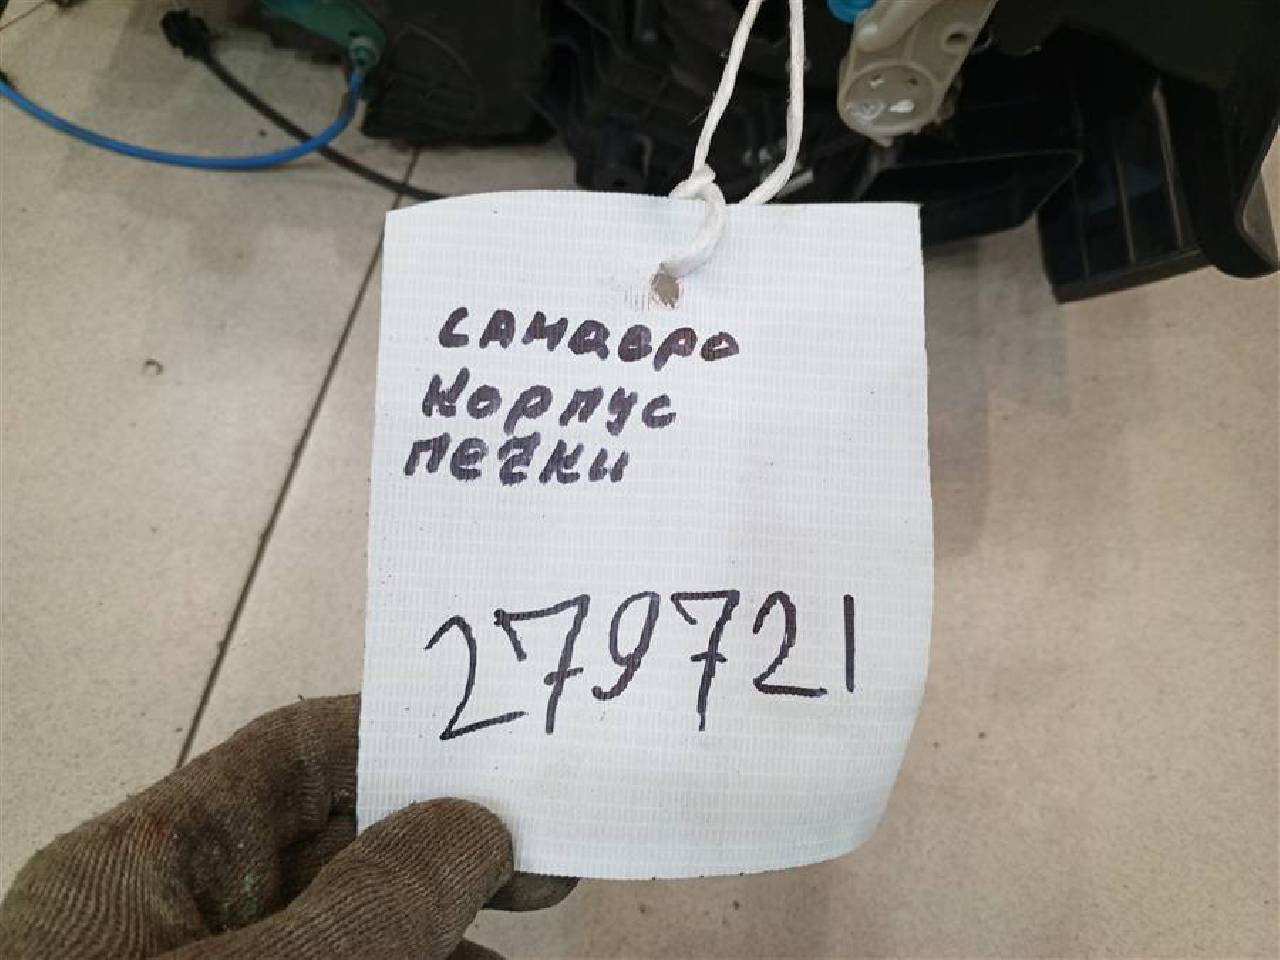 САНДЕРО
КОРПУС
ПЕЧКИ
279721